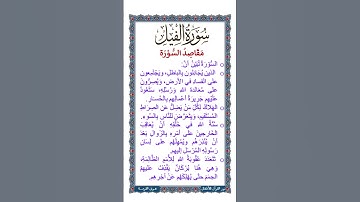 سُورَةُ الفِيلِ
مَقَاصِدُ السُّورَةِ
السُّورَةُ تُبَيِّنُ أَنَّ:
الَّذِينَ يُجَادِلُونَ بِالبَاطِلِ، وَيَجْتَمِعُونَ
عَلَى الفَسَادِ فِي الأَرْضِ، وَيُصِرُّونَ
عَلَى مُعَانَدَةِ اللهِ وَرُسُلِهِ؛ سَتَعُودُ
عَلَيْهِمْ جَرِيرَةُ أَعْمَالِهِمْ بِالخُسْرَانِ.
الهَلَاكَ لِكُلِّ مَنْ يَضِلُّ عَنِ الصِّرَاطِ
المُسْتَقِيمِ، وَيَتَعَرَّضُ لِلنَّاسِ بِالسُّوءِ.
سُنَّةُ اللهِ فِي خَلْقِهِ أَنْ يُعَاقِبَ
الخَارِجِينَ عَلَى أَمْرِهِ بِالزَّوَالِ بَعْدَ
أَنْ يُنْذِرَهُمْ وَيُمْهِلَهُمْ عَلَى لِسَانِ
رَسُولِهِ المُرْسَلِ إِلَيْهِمْ.
تَتَعَدَّدُ عُقُوبَةُ اللهِ لِلأُمَمِ الظَّالِمَةِ،
وَهِيَ هُنَا بُرْكَانٌ يَقْذِفُ عَلَيْهِمُ
الحِمَمَ حَتَّى يُهْلِكَهُمْ عَنْ آخِرِهِمْ.